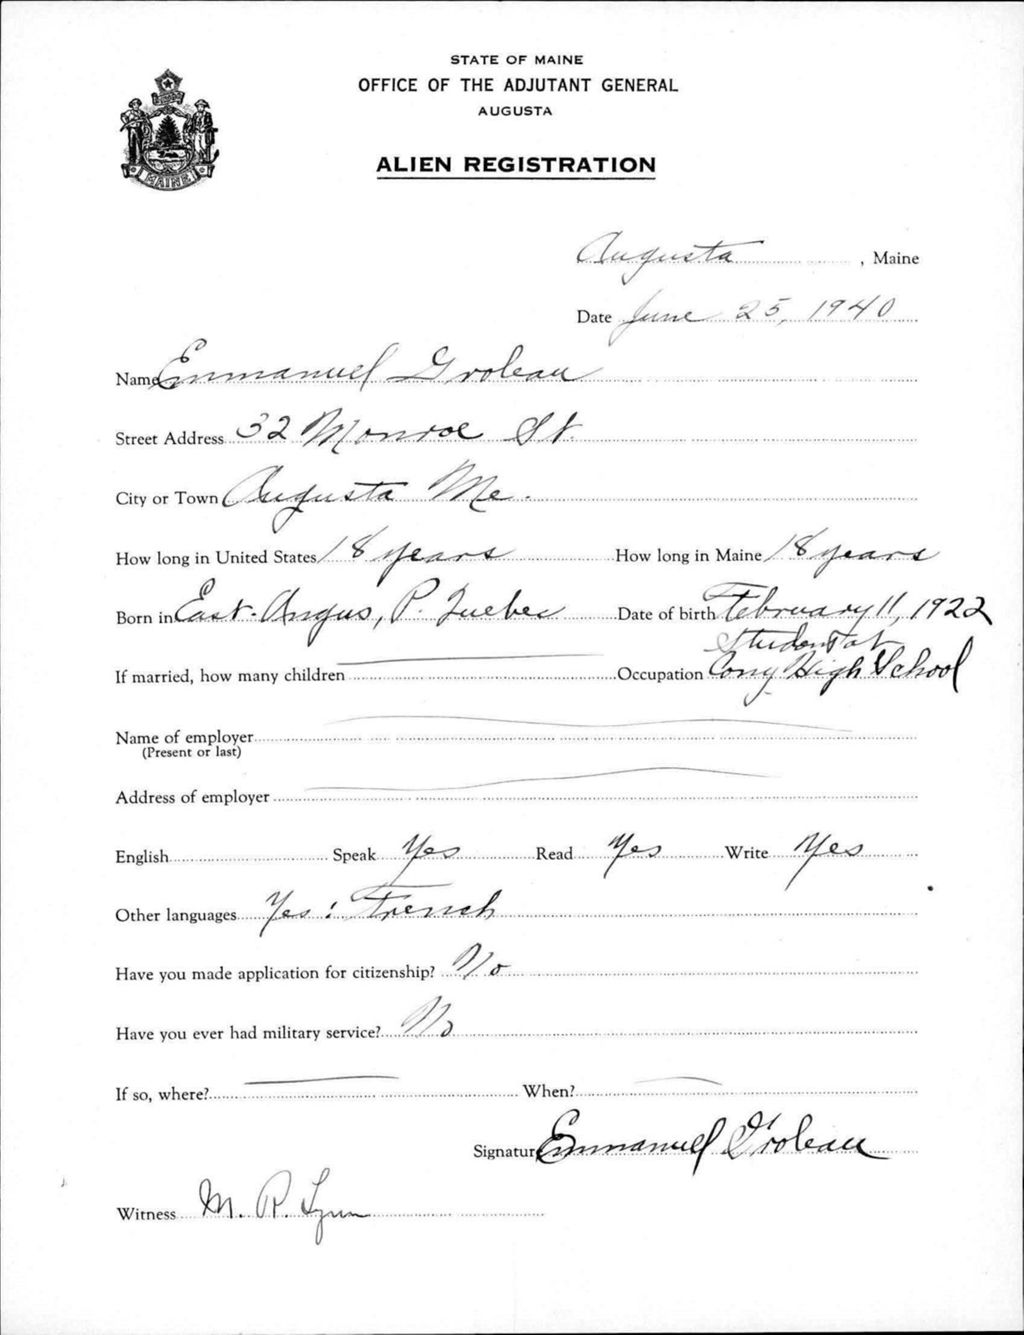 STATE OF MAINE
OFFICE OF THE ADJUTANT GENERAL
AUGUSTA
ALIEN REGISTRATION
MAINE
Augusta, Maine
Date June 25, 1940
Name Emmanuel Groleau
Street Address 32 Monroe St.
City or Town Augusta Me.
How long in United States 18 years How long in Maine 18 years
Born in East-Angus, P. Quebec Date of birth February 11, 1922
If married, how many children Occupation Student at Cony High School
Name of employer
(Present or last)
Address of employer
English Speak Yes Read Yes Write Yes
Other languages Yes: French
Have you made application for citizenship? No
Have you ever had military service? No
If so, where? When?
Signature Emmanuel Groleau
Witness M. R. Lynn